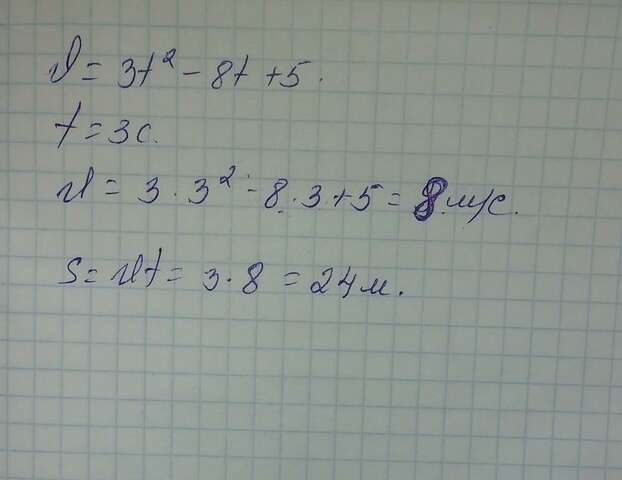 v = 3t² - 8t + 5.
t = 3с.
v = 3 · 3² - 8 · 3 + 5 = 8 м/с.
s = vt = 3 · 8 = 24 м.